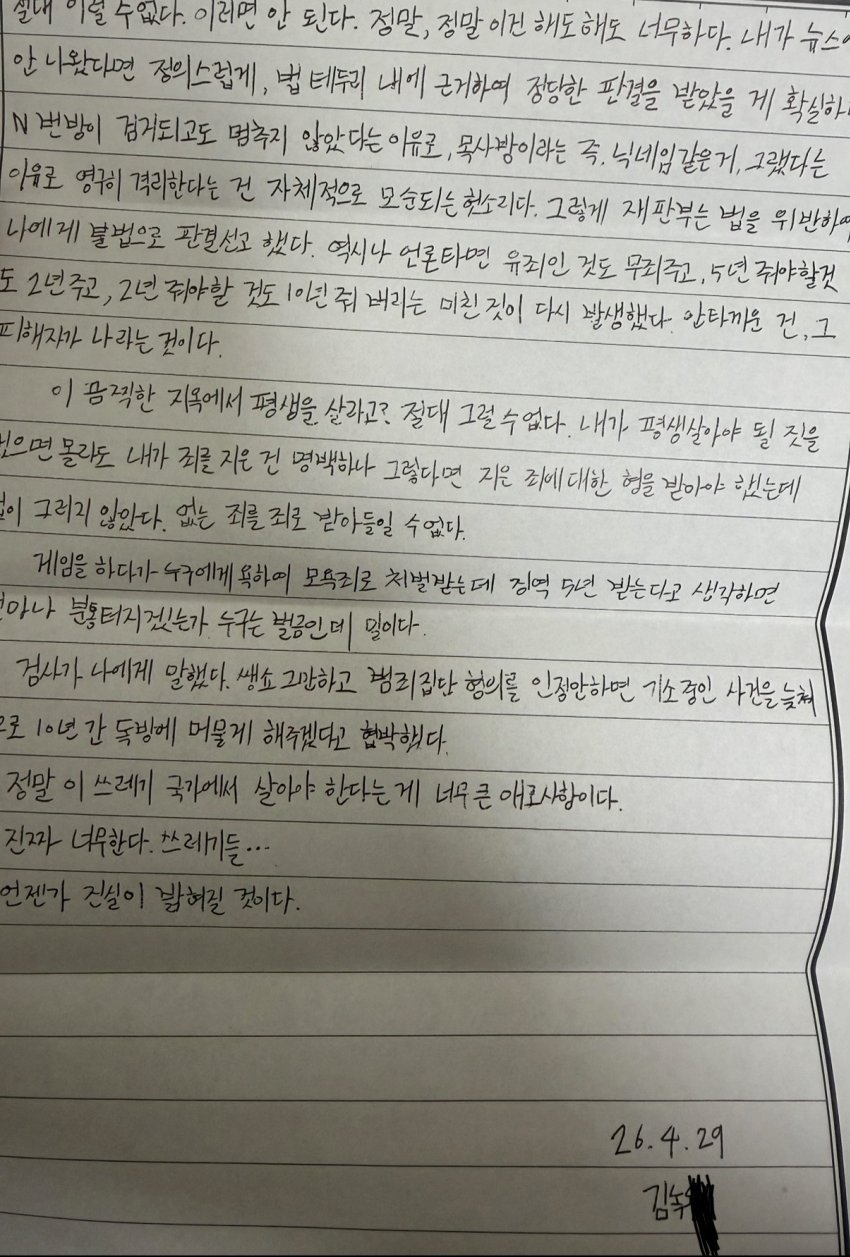 절대 이럴 수 없다. 이러면 안 된다. 정말, 정말 이건 해도해도 너무하다. 내가 뉴스에
안 나왔다면 정의스럽게, 법 테두리 내에 근거하여 정당한 판결을 받았을 게 확실하
N번방이 검거되고도 멈추지 않았다는 이유로, 목사방이라는 즉, 닉네임같은거, 그랬다는
이유로 영구히 격리한다는 건 자체적으로 모순되는 헛소리다. 그렇게 재판부는 법을 위반하여
나에게 불법으로 판결선고 했다. 역시나 언론타면 유죄인 것도 무죄주고, 5년 줘야할것
도 2년주고, 2년 줘야할 것도 10년줘 버리는 미친짓이 다시 발생했다. 안타까운 건, 그
피해자가 나라는 것이다.
이 끔찍한 지옥에서 평생을 살라고? 절대 그럴 수 없다. 내가 평생살아야 될 짓을
했으면 몰라도 내가 죄를 지은 건 명백하나 그렇다면 지은 죄에 대한 형을 받아야 했는데
법이 그러지 않았다. 없는 죄를 죄로 받아들일 수 없다.
게임을 하다가 누구에게 욕하여 모욕죄로 처벌받는데 징역 5년 받는다고 생각하면
얼마나 분통터지겠는가 누구는 벌금인데 말이다.
검사가 나에게 말했다. 쌩쇼 그만하고 범죄집단 혐의를 인정안하면 기소중인 사건을 늦춰
으로 10년 간 독방에 머물게 해주겠다고 협박했다.
정말 이 쓰레기 국가에서 살아야 한다는 게 너무 큰 애로사항이다.
진짜 너무한다. 쓰레기들...
언젠가 진실이 밝혀질 것이다.
26.4.29
김녹